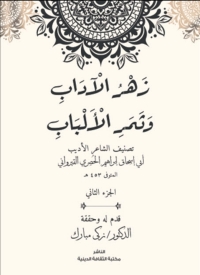 زَهْرُ الْآدَابِ
وَثَمَرِ الْأَلْبَابِ
تصنيف الشاعر الأديب
أبي إسحاق إبراهيم الحصري القيرواني
المتوفى ٤٥٣ هـ
الجزء الثاني
قدم له وحققة
الدكتور/ زكى مبارك
الناشر
مكتبة الثقافة الدينية